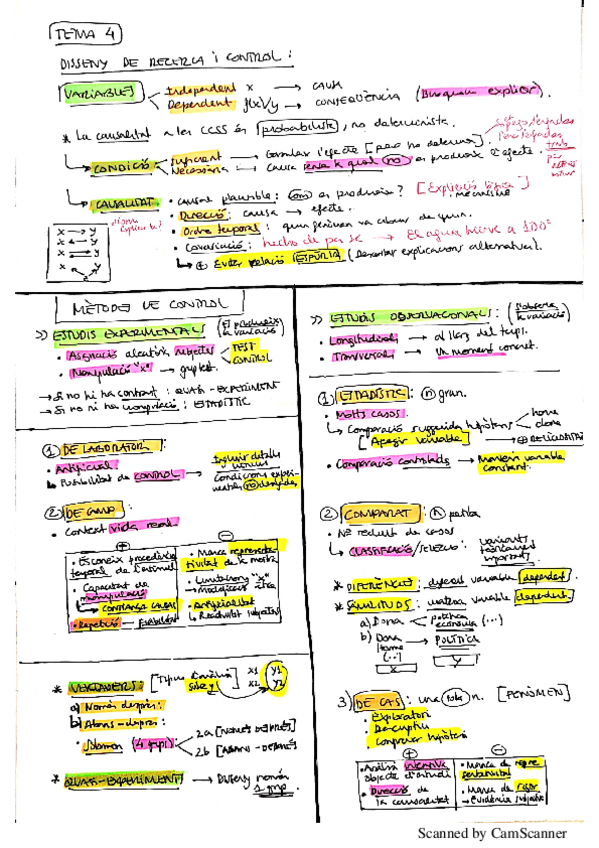 TEMA 4
DISSENY DE RECERCA I CONTROL:
VARIABLES
Independent x → CAUSA
Dependent f(x)/y → CONSEQÜÈNCIA (Busquem explicar).
* La causalitat a les CCSS és probabilista, no determinista.
CONDICIÓ
Suficient → Generar l'efecte [però no determina].
Necessària → Causa sense la qual no es produeix l'efecte.
CAUSALITAT
• causal plausible: Com es produeix? [Explicació lògica]
• Direcció: causa → efecte.
• Ordre temporal: quin fenomen va abans de quin.
• Covariació: fecho de per se → El agua hierve a 100º
↳ ⊕ Evitar relació ESPÚRIA (Descartar explicacions alternatives).
x → y
x ← y
MÈTODES DE CONTROL
>> ESTUDIS EXPERIMENTALS (Es produeix la variació)
• Asignació aleatòria subjectes
TEST
CONTROL
• Manipulació "x" →
→ Si no hi ha control: QUASI-EXPERIMENT
→ Si no hi ha manipulació: ESTADÍSTIC
1) DE LABORATORI:
• Artificial
↳ Possibilitat de control →
Condicions experimentals no desitjades
2) DE CAMP:
• Context vida real
⊕
• Esconeix procediència temporal de l'estímul
• Capacitat de manipulació
↳ CONFIANÇA CAUSAL
• Repetició → fiabilitat
⊖
• Manca representativitat de la mostra
• Limitacions "x"
• Artificialitat
↳ Reactivitat subjectes
* VERTADERS: [Tipus d'anàlisi sobre y]
x1 y1
x2 y2
a) Només després:
b) Abans-després:
• Solomon (4 grups):
2a [NOMÉS DESPRÉS]
2b [ABANS-DESPRÉS]
* QUASI-EXPERIMENT → Disseny només 1 grup
>> ESTUDIS OBSERVACIONALS: (S'observa la variació)
• Longitudinal → al llarg del temps.
• Transversal → Un moment concret.
1) ESTADÍSTIC: n gran.
• Molts casos.
↳ Comparació suggerida hipòtesis
home
dona
[Afegir variable]
• Comparació controlada → Mantenir variable constant.
2) COMPARAT: n petita
• Nº reduït de casos
↳ CLASSIFICACIÓ/SELECCIÓ:
* DIFERÈNCIES: diferent variable dependent.
* SIMILITUDS: mateixa variable dependent.
a) Dona → economia (...)
b) Dona → POLÍTICA
Home
(...)
x
y
3) DE CAS: una sola n. [FENOMEN]
• Exploratori
• Descriptiu
• Comprovar hipòtesi
⊕
• Anàlisi intensiva objecte d'estudi
• Direcció de la causalitat
⊖
• Manca de representativitat
• Manca de rigor
→ Evidència subjectiva
Scanned by CamScanner